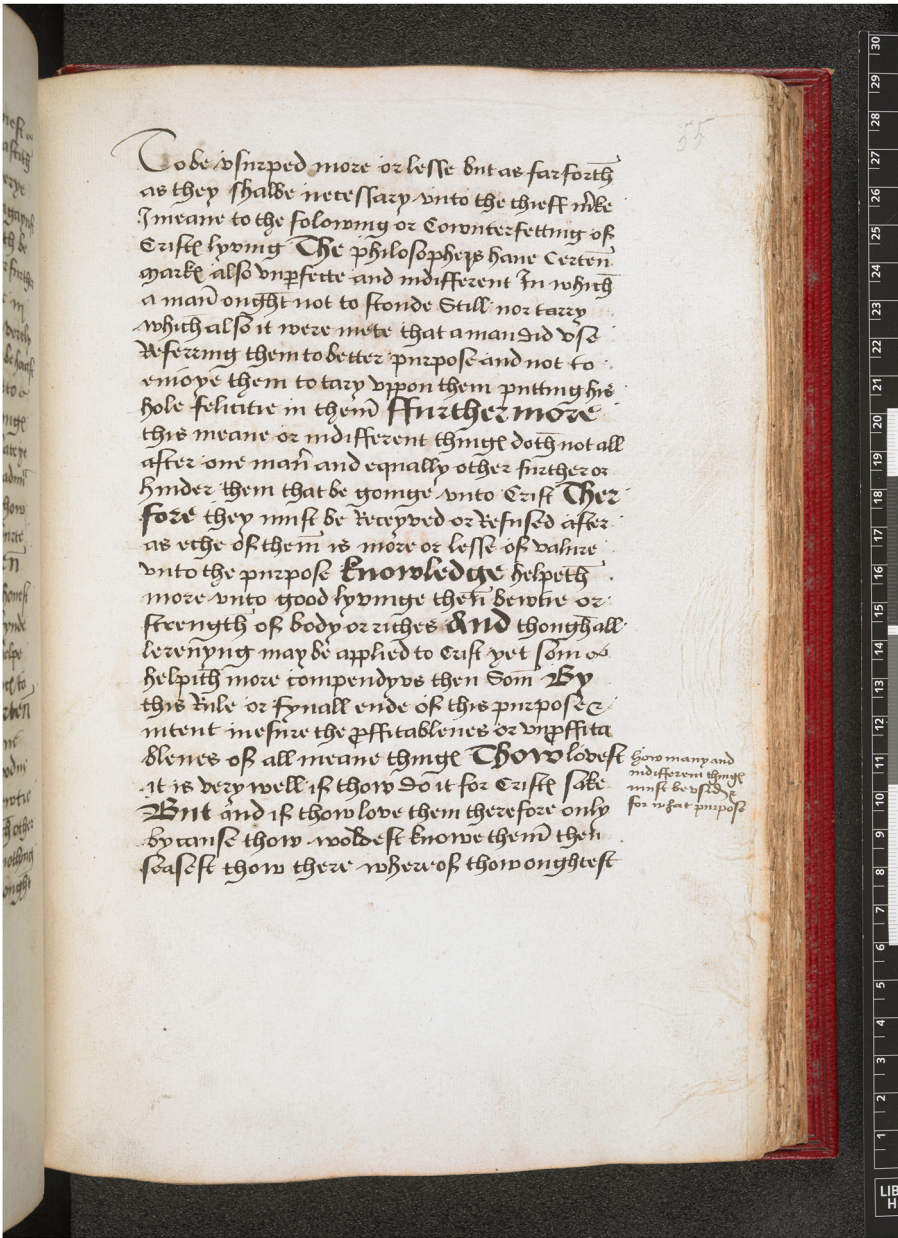 55
To be vsurped more or lesse but as farforth
as they shalbe necessary vnto the chieff m̃ke
I meane to the folowing or Cownterfetting of
Cristꝭ lyving The philosophers haue Certen
markꝭ also vnꝑfecte and indifferent In which
a man ought not to stonde Still nor tarry
which also it were mete that a man did vse
Referring them to better purpose and not to
enioye them to tary vppon them putting his
hole felicitie in them ffurthermore
this meane or indifferent thingꝭ doth not all
after one man and equally other further or
hinder them that be goinge vnto Crist Ther
fore they must be Receyved or Refused after
as eche of them is more or lesse of valure
vnto the purpose knowledge helpeth
more vnto good lyvinge then bewtie or
strength of body or riches And though all
lerenyng may be applied to Crist yet som
helpith more compendyvs then Som By
this Rule or fynall ende of this purpose &
intent mesure the ꝓffitablenes or vnꝓffita
blenes of all meane thingꝭ Thow lovest
it is very well if thow do it for Cristꝭ sake
But and if thow love them therefore only
by cause thow woldest knowe them then
seasest thow there whereof thow oughtest
how many and
indifferent thingꝭ
must be vsed &
for what purpose
30
29
28
27
26
25
24
23
22
21
20
19
18
17
16
15
14
13
12
11
10
9
8
7
6
5
4
3
2
1
LIB
H